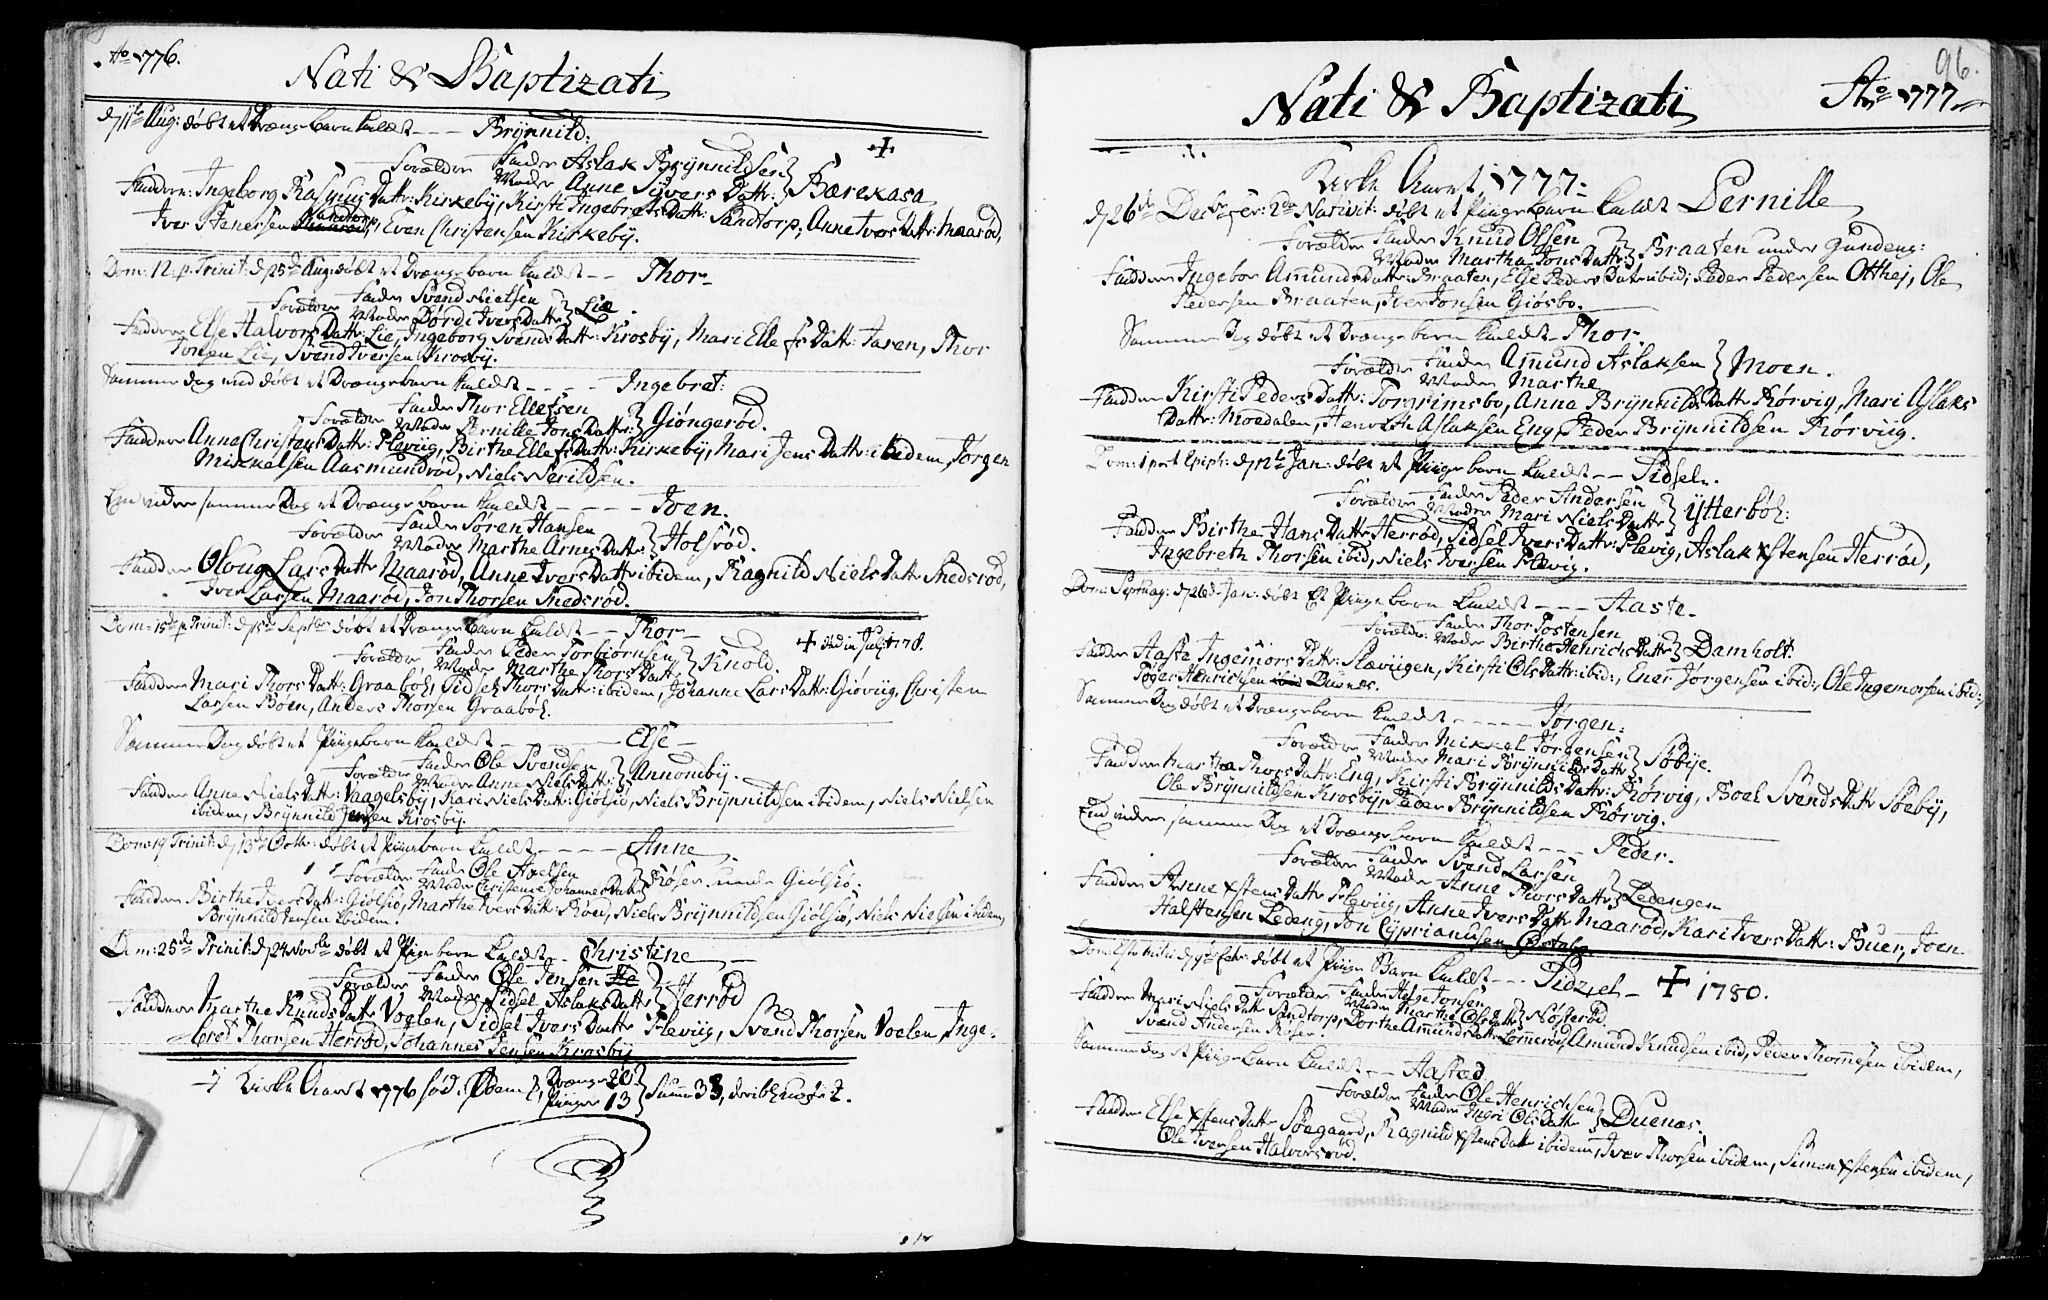 Ao 1776.
Nati & Baptizati
d 11te Aug: døbt et Drænge barn kaldet - - - Brÿnnild.
Forældre Fader Aslak Brÿnnildsen
Moder Anne Sÿvers Datt: } Bærekasa +
Faddere: Ingeborg Rasmus Datt: Kirkebÿ, Kirsti Ingebrets Datt: Sandtorp, Anne Ivers Datt: Maarød,
Iver Stenersen Sandtorp, Even Christensen Kirkebÿ.
Dom: 12 p. Trinit: d 25de Aug: døbt et Drænge barn kaldet - - Thor -
Forældre Fader Svend Nielsen
Moder Dordi Ivers Datt: } Lie.
Faddere Else Halvors Datt: Lie, Ingeborg Svends Datt: Krosbÿ, Mari Ellefs Datt: Jaren, Thor
Jonsen Lie, Svend Iversen Krosbÿ.
Samme dag end døbt et Drænge barn kaldet - - - - Ingebret:
Forældre Fader Thor Ellefsen
Moder Pernille Jons Datter } Giøngerød.
Faddere Anna Christens Datt: Plaviig, Birthe Ellefs Datt: Kirkebÿ, Mari Jens Datt: ibidem, Jørgen
Mikkelsen Aasmundrød, Niels Nerildsen.
End videre samme Dag et Drænge barn kaldet - - - - Joen.
Forældre Fader Søren Hansen
Moder Marthe Arnes Datt: } Holsrød.
Faddere Oloug Lars Datt: Maarød, Anne Ivers Datt: ibidem, Ragnild Niels Datt: Snedsrød,
Iver Larsen Maarød, Jon Thorsen Snedsrød.
Dom: 15de p. Trinit: d 15de Septbr døbt et Drænge barn kaldet - - Thor -
Forældre Fader Peder Torbiørnsen
Moder Marthe Thors Datt: } Knold. + død in Julÿ 1778.
Faddere Mari Thors Datt: Graaboe, Sidsel Thors Datt: ibidem, Johanne Lars Datt: Giøviig, Christen
Larsen Boen, Anders Thorsen Graaboe.
Samme Dag døbt et Piigebarn kaldet - - - - Else -
Forældre Fader Ole Svendsen
Moder Anne Niels Datt: } Annombÿ.
Faddere Anne Niels Datt: Vaagelsbÿ, Kari Niels Datt: Giølsiø, Niels Brÿnnildsen ibidem, Niels Nielsen
ibidem, Brÿnnild Jensen Krosbÿ.
Dom: 19 Trinit: d 13de Octbr: døbt et Piigebarn kaldet - - - - Anne
Forældre Fader Ole Axelsen
Moder Christense Johannes Datt: } Røsen under Giølsiø.
Faddere Birthe Ivers Datt: Giølsiø, Marthe Ivers Datt: Røed, Niels Brÿnnildsen Giølsiø, Niels Nielsen ibidem,
Brÿnnild Jensen ibidem.
Dom: 25de Trinit: d 24 Novbr døbt et Piige barn kaldet - Christine -
Forældre Fader Ole Jensen
Moder Sidsel Aslaks Datt: } Herrød
Faddere Marthe Knuds Datt: Voelen, Sidsel Ivers Datt: Plaviig, Svend Thorsen Voelen, Inge-
bret Thorsen Herrød, Johannes Jensen Krosbÿ
I Kirke Aaret 1776 fød: Drænge 20
Piiger 13 } Summa 33,
96.
Nati & Baptizati
Ao 1777
Kirke Aaret 1777:
d 26de Decbr fer: 2da Nativit: døbt et Piige barn kaldet Pernille
Forældre Fader Knud Olsen
Moder Martha Jons Datt: } Braaten under Gundeng:
Faddere Ingebor Amunds Datt: Braaten, Else Peders Datt: ibid; Peder Pedersen Otthej, Ole
Pedersen Braaten, Iver Jonsen Giøsbo.
Samme Dag døbt et Drænge barn kaldet Thor.
Forældre Fader Amund Aslaksen
Moder Marthe } Moen.
Faddere Kirsti Peders Datt: Torgrimsbo, Anna Brÿnnilds Datt: Rørvig, Mari Aslaks
Datt: Moedalen, Henrich Aslaksen Eng, Peder Brÿnnildsen Rørviig.
Dom: 1 post Epiph: d 12te Jan: døbt et Piige barn kaldet - - Sidsel.
Forældre Fader Peder Andersen
Moder Mari Niels Datt: } Ytterbøe:
Faddere Birthe Hans Datt: Herrød, Sidsel Ivers Datt: Plevig, Aslak Xstensen Herrød,
Ingebreth Thorsen ibid, Niels Iversen Plevig.
Dom: Septuag: d 26de Jan: døbt Et Piige barn kaldet - - - Aaste -
Forældre Fader Thor Tostensen
Moder Birthe Henrichs Datt: } Damholt.
Faddere Aaste Ingemors Datt: Plaviigen, Kirsti Ols Datt: ibid:, Ener Jørgensen ibid:, Ole Ingemorsen ibid:,
Tøger Henrichsen Duenæs.
Samme Dag døbt et Drænge barn kaldet - - - - Jørgen:
Forældre Fader Mikkel Jørgensen
Moder Mari Brÿnnilds Datt: } Søbÿe.
Faddere Martha Thors Datt: Eng, Kirsti Brÿnnilds Datt: Rørvig, Boel Svends Datt: Søebÿ,
Ole Brÿnnildsen Krosbÿ, Peder Brÿnnildsen Rørvig.
End videre samme Dag et Drænge barn kaldet - - - Peder.
Forældre Fader Svend Larsen
Moder Anne Thors Datt: } Ledengen
Faddere Anne Xstens Datt: Plaviig, Anne Ivers Datt: Maarød, Kari Ivers Datt: Buer, Joen
Halstensen Ledeng, Jon Cÿpriansen
Dom: Esto mihi d 9de Febr: døbt et Piige Barn kaldet - - - Sidzel - + 1780.
Forældre Fader Helge Jonsen
Moder Marthe Ols Datt: } Nøsterød
Faddere Mari Niels Datt: Sandtorp, Dorthe Amunds Datt: Lømerød, Amund Knudsen ibid, Peder Thommesen ibidem,
Svend Andersen
Samme dag et Piige barn kaldet - - Aastæd
Forældre Fader Ole Henrichsen
Moder Ingri Ols Datt: } Duenæs.
Faddere Else Xstens Datt: Søegaard, Ragnild Xstens Datt: ibidem, Iver Thorsen ibidem, Simen Xstensen ibidem,
Ole Iversen Halvorsrød.